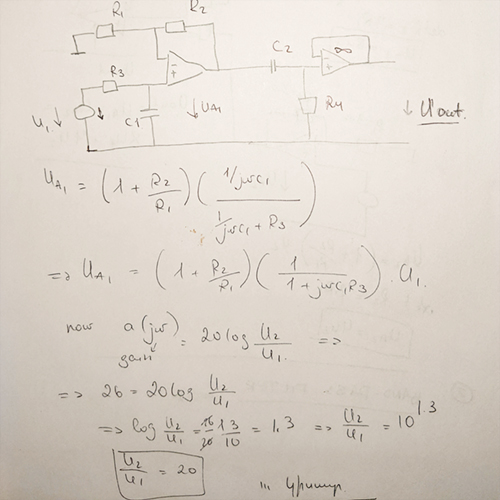 R1 R2
C2 ∞
R3
U1 C1 UA1 R4 Uout.
UA1 = (1 + R2/R1) ( (1/jωC1) / (1/jωC1 + R3) )
=> UA1 = (1 + R2/R1) ( 1 / (1 + jωC1R3) ) · U1.
now a(jω) = 20 log U2/U1. =>
gain
=> 26 = 20 log U2/U1
=> log U2/U1 = 26/20 13/10 = 1.3 => U2/U1 = 10^1.3
U2/U1 = 20